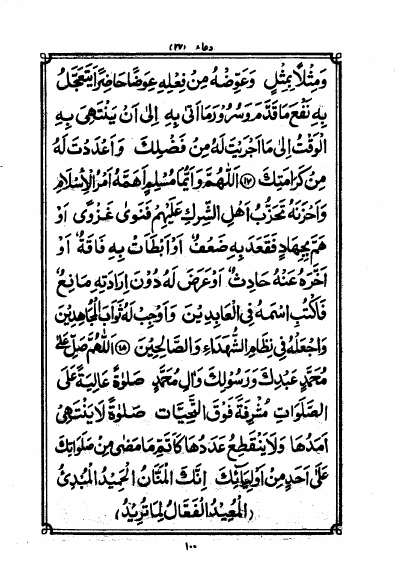 دعاء (٢٧)
وَمِثْلًا بِمِثْلٍ وَعَوِّضْهُ مِنْ فِعْلِهِ عِوَضًا حَاضِرًا يَتَعَجَّلُ
بِهِ نَفْعَ مَا قَدَّمَ وَسُرُورَ مَا أَتَى بِهِ إِلَى أَنْ يَنْتَهِيَ بِهِ
الْوَقْتُ إِلَى مَا أَجْرَيْتَ لَهُ مِنْ فَضْلِكَ وَأَعْدَدْتَ لَهُ
مِنْ كَرَامَتِكَ (١٧) اَللّٰهُمَّ وَأَيُّمَا مُسْلِمٍ أَهَمَّهُ أَمْرُ الْإِسْلَامِ
وَأَحْزَنَهُ تَحَزُّبُ أَهْلِ الشِّرْكِ عَلَيْهِمْ فَنَوَى غَزْوًى أَوْ
هَمَّ بِجِهَادٍ فَقَعَدَ بِهِ ضَعْفٌ أَوْ أَبْطَأَتْ بِهِ فَاقَةٌ أَوْ
أَخَّرَهُ عَنْهُ حَادِثٌ أَوْ عَرَضَ لَهُ دُونَ إِرَادَتِهِ مَانِعٌ
فَاكْتُبِ اسْمَهُ فِي الْعَابِدِيْنَ وَأَوْجِبْ لَهُ ثَوَابَ الْمُجَاهِدِيْنَ
وَاجْعَلْهُ فِي نِظَامِ الشُّهَدَاءِ وَالصَّالِحِيْنَ (١٨) اَللّٰهُمَّ صَلِّ عَلَى
مُحَمَّدٍ عَبْدِكَ وَرَسُولِكَ وَآلِ مُحَمَّدٍ صَلَوٰةً عَالِيَةً عَلَى
الصَّلَوَاتِ مُشْرِفَةً فَوْقَ التَّحِيَّاتِ صَلَوٰةً لَا يَنْتَهِي
أَمَدُهَا وَلَا يَنْقَطِعُ عَدَدُهَا كَأَتَمِّ مَا مَضَى مِنْ صَلَوَاتِكَ
عَلَى أَحَدٍ مِنْ أَوْلِيَائِكَ إِنَّكَ الْمَنَّانُ الْحَمِيْدُ الْمُبْدِئُ
(الْمُعِيْدُ الْفَعَّالُ لِمَا تُرِيْدُ)
١٠٠